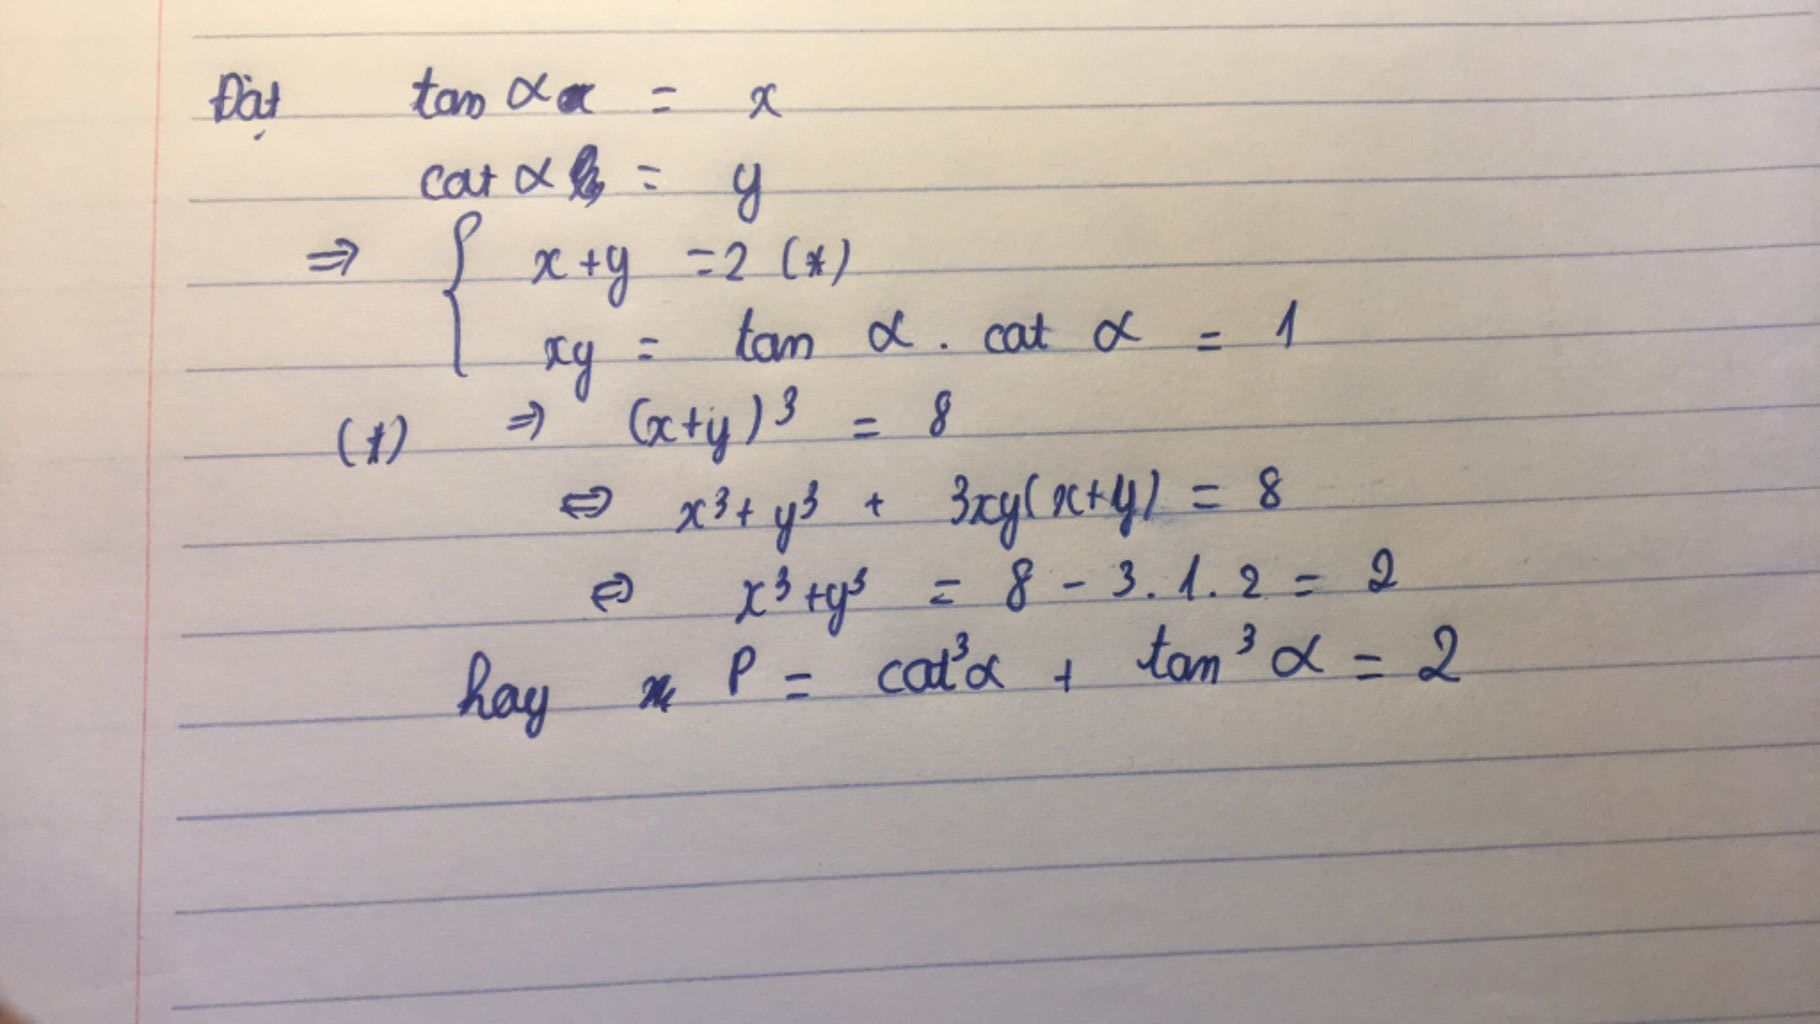 Đặt tan α = x
cot α = y
⇒ { x + y = 2 (*)
xy = tan α . cot α = 1
(*) ⇒ (x+y)³ = 8
⇔ x³ + y³ + 3xy(x+y) = 8
⇔ x³ + y³ = 8 - 3.1.2 = 2
hay P = cot³α + tan³α = 2